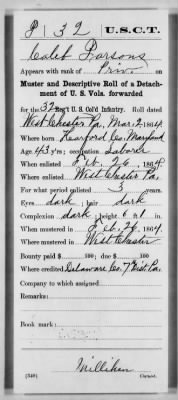 P 132 U.S.C.T.
Caleb Parsons
Appears with rank of Priv. on
Muster and Descriptive Roll of a Detach-
ment of U. S. Vols. forwarded
for the 32 Reg't U.S. Col'd Infantry. Roll dated
West Chester Pa, Mar. 2, 1864.
Where born Hearford Co, Maryland
Age 43 y'rs; occupation Laborer
When enlisted Feb. 26, 1864.
Where enlisted West Chester Pa.
For what period enlisted 3 years.
Eyes dark; hair dark
Complexion dark; height 6 ft. 1 in.
When mustered in Feb. 26, 1864.
Where mustered in West Chester
Bounty paid $ 100; due $ 100
Where credited Delaware Co. 7" Dist. Pa.
Company to which assigned
Remarks:
Book mark:
Milliken
(340) Copyist.